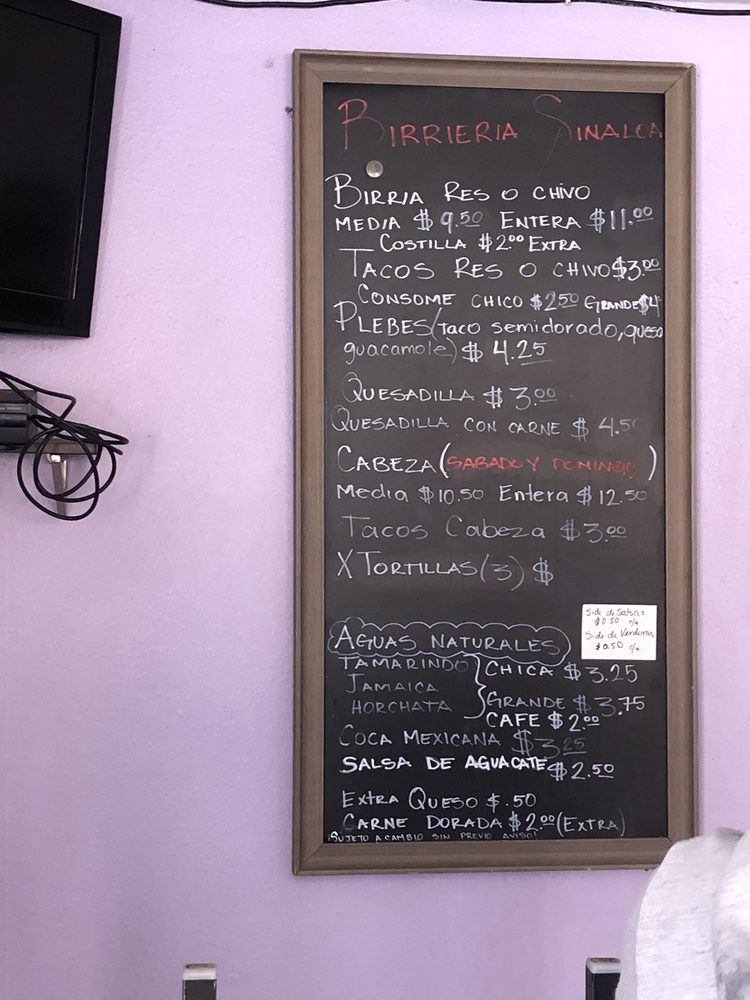 BIRRIERIA SINALOA
BIRRIA RES O CHIVO
MEDIA $9.50 ENTERA $11.00
— COSTILLA $2.00 EXTRA
TACOS RES O CHIVO $3.00
CONSOME CHICO $2.50 GRANDE $4
PLEBES (taco semidorado, queso
guacamole) $4.25
QUESADILLA $3.00
QUESADILLA CON CARNE $4.50
CABEZA (SABADO Y DOMINGO)
Media $10.50 Entera $12.50
Tacos Cabeza $3.00
X TORTILLAS (3) $
Side de Salsas
$0.50 c/u
Side de Verduras
$0.50 c/u
AGUAS NATURALES
TAMARINDO CHICA $3.25
JAMAICA
HORCHATA GRANDE $3.75
CAFE $2.00
COCA MEXICANA $3.25
SALSA DE AGUACATE $2.50
EXTRA QUESO $.50
CARNE DORADA $2.00 (EXTRA)
¡SUJETO A CAMBIO SIN PREVIO AVISO!